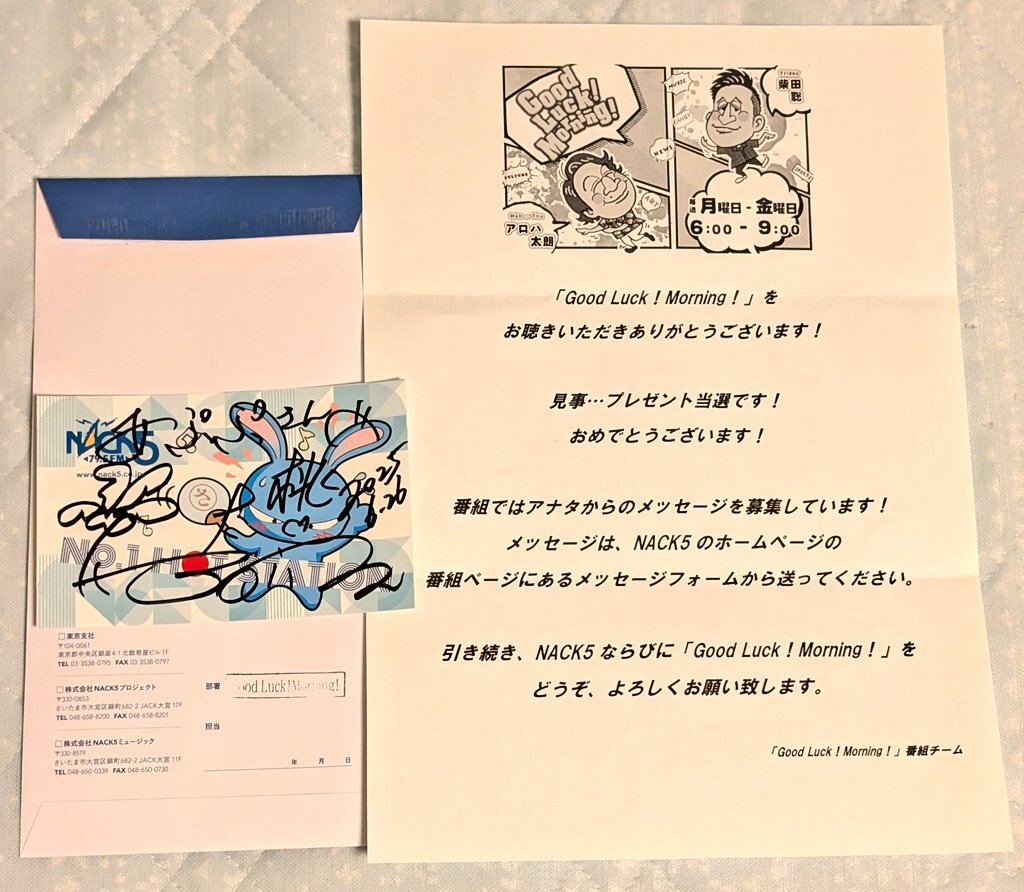 Good
Luck!
Morning!
MUSIC
CANDY
NEWS
CULTURE
ART
SPORTS
Friday
柴田
聡
Mon - Thu
アロハ
太朗
毎週 月曜日 - 金曜日
6:00 - 9:00
「Good Luck!Morning!」を
お聴きいただきありがとうございます!
見事…プレゼント当選です!
おめでとうございます!
番組ではアナタからのメッセージを募集しています!
メッセージは、NACK5 のホームページの
番組ページにあるメッセージフォームから送ってください。
引き続き、NACK5 ならびに「Good Luck!Morning!」を
どうぞ、よろしくお願い致します。
「Good Luck!Morning!」番組チーム
NACK5
79.5 FM
www.nack5.co.jp
さ
桃
NO.1 HOT STATION
□東京支社
〒104-0061
東京都中央区銀座4-1 北数寄屋ビル1F
TEL 03-3538-0795 FAX 03-3538-0797
□株式会社NACK5プロジェクト
〒330-0853
さいたま市大宮区錦町682-2 JACK大宮 17F
TEL 048-658-8200 FAX 048-658-8201
□株式会社NACK5ミュージック
〒330-8579
さいたま市大宮区錦町682-2 JACK大宮 11F
TEL 048-650-0339 FAX 048-650-0730
部署 ood Luck!Morning!
担当
年 月 日